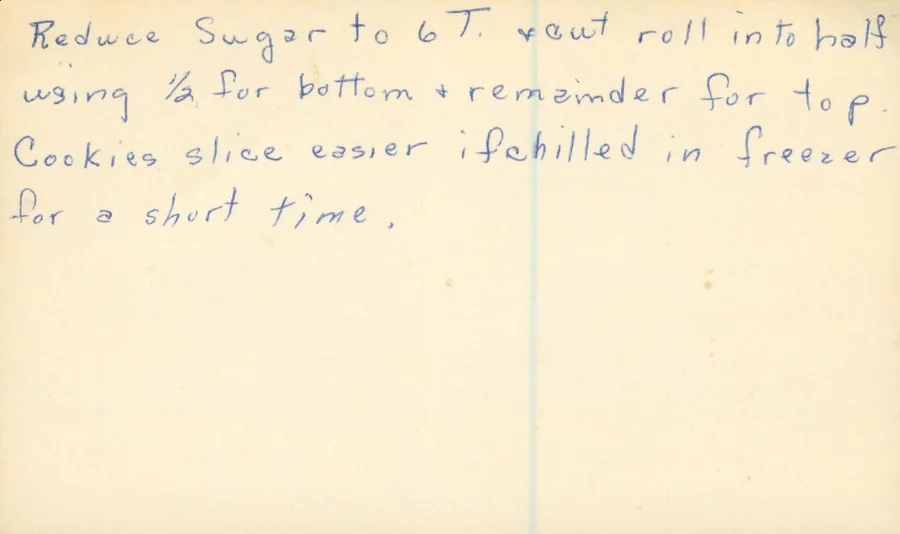 Reduce Sugar to 6 T. & cut roll into half
using 1/2 for bottom & remainder for top.
Cookies slice easier if chilled in freezer
for a short time.